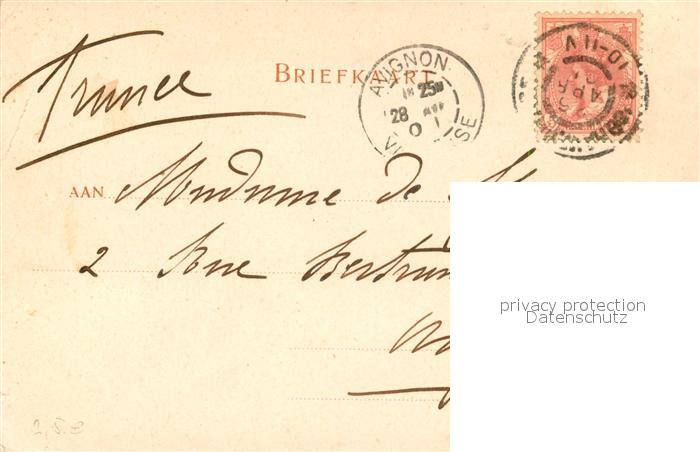 France
BRIEFKAART
AVIGNON
25
28
AAN Madame de
2 Rue Bertran
privacy protection
Datenschutz
2,5.€